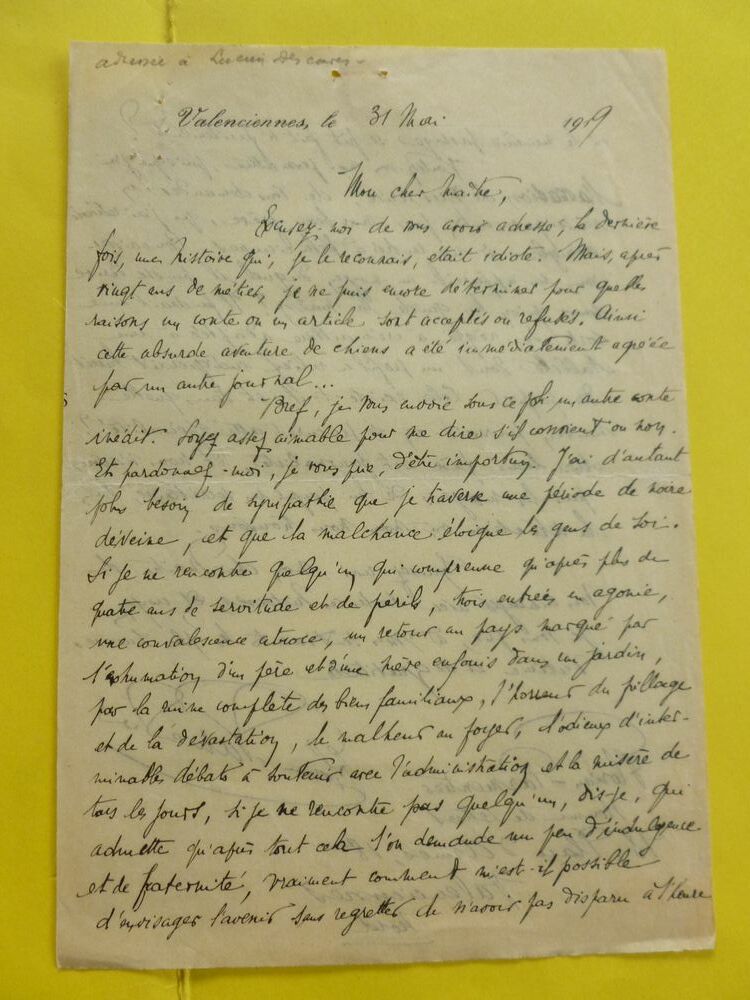 adressée à Lucien Descaves
Valenciennes, le 31 Mai 1919
Mon cher Maître,
Excusez-moi de vous avoir adressé, la dernière
fois, une histoire qui, je le reconnais, était idiote. Mais, après
vingt ans de métier, je ne puis encore déterminer pour quelles
raisons un conte ou un article sont acceptés ou refusés. Ainsi
cette absurde aventure de chiens a été immédiatement agréée
par un autre journal...
Bref, je vous envoie sous ce pli un autre conte
inédit. Soyez assez aimable pour me dire s'il convient ou non.
Et pardonnez-moi, je vous prie, d'être importun. J'ai d'autant
plus besoin de sympathie que je traverse une période de noire
déveine, et que la malchance éloigne les gens de soi.
Si je ne rencontre quelqu'un qui comprenne qu'après plus de
quatre ans de servitude et de périls, trois entrées en agonie,
une convalescence atroce, un retour au pays marqué par
l'exhumation d'un père et d'une mère enfouis dans un jardin,
par la ruine complète des biens familiaux, l'horreur du pillage
et de la dévastation, le malheur au foyer, l'odieux d'inter-
minables débats à soutenir avec l'administration et la misère de
tous les jours, si je ne rencontre pas quelqu'un, dis-je, qui
admette qu'après tout cela l'on demande un peu d'indulgence
et de fraternité, vraiment comment m'est-il possible
d'envisager l'avenir sans regretter de n'avoir pas disparu à l'heure